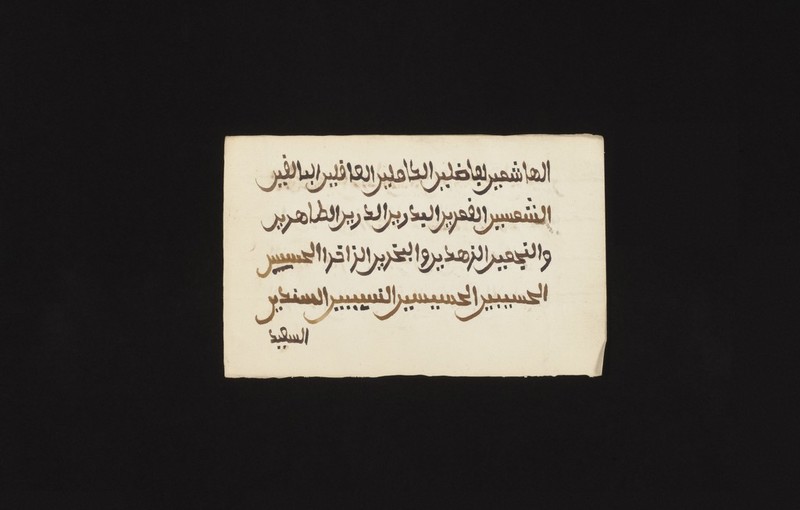 الهاشمين الفاضلين الكاملين العاقلين البالغين
الشمسين القمرين البدرين الدرين الطاهرين
والنجمين الزهدين والبحرين الزاخرا الحسنين
الحسيبين الحسينين النسيبين السندين
السعيد